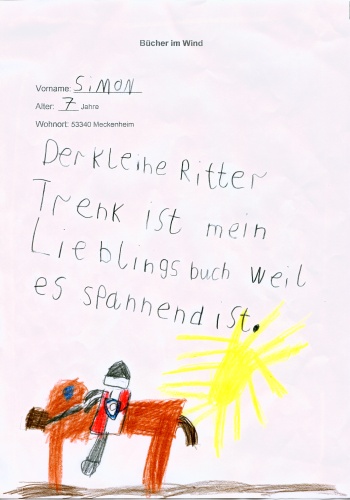 Bücher im Wind
Vorname: SiMON
Alter: 7 Jahre
Wohnort: 53340 Meckenheim
Der kleine Ritter
Trenk ist mein
Lieblingsbuch weil
es spannend ist.